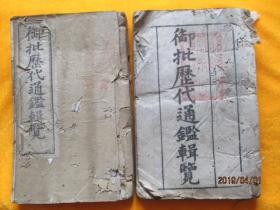 御批歷代通鑑輯覽
御批歷代通鑑輯覽
2019/04/01